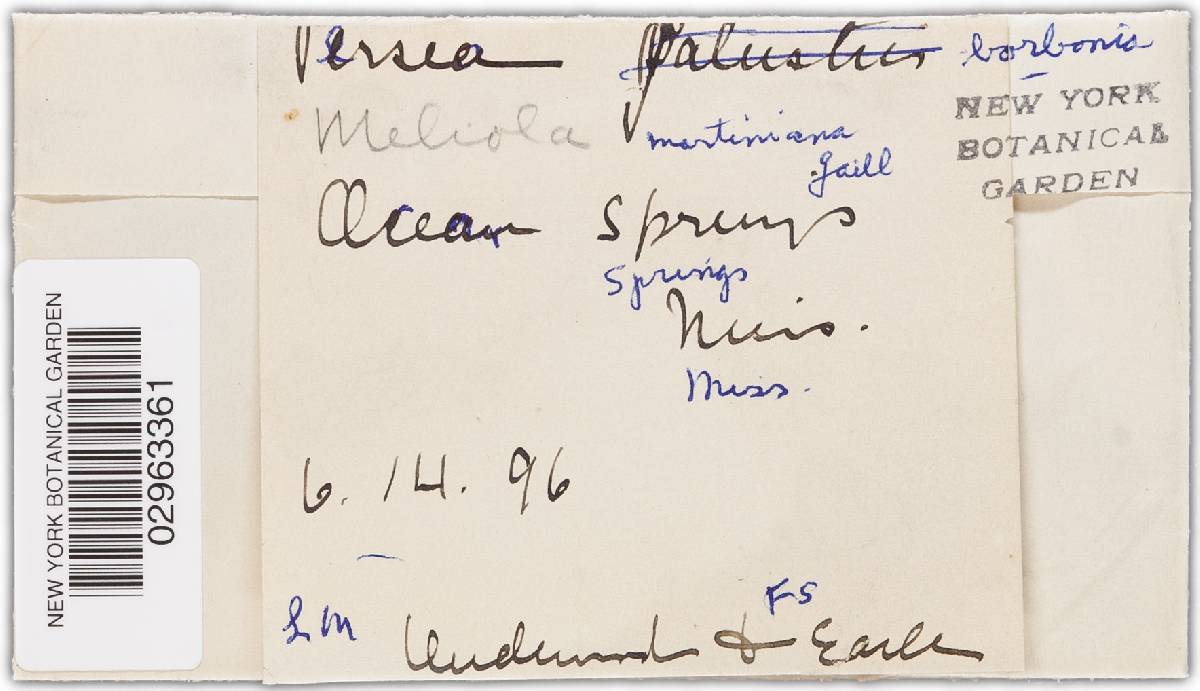 Persea Palustris borbonia
NEW YORK
BOTANICAL
GARDEN
Meliola martiniana
Gaill
Ocean Springs
Springs
Miss.
Miss.
6. 14. 96
LM
FS
Underwood & Earle
NEW YORK BOTANICAL GARDEN
02963361